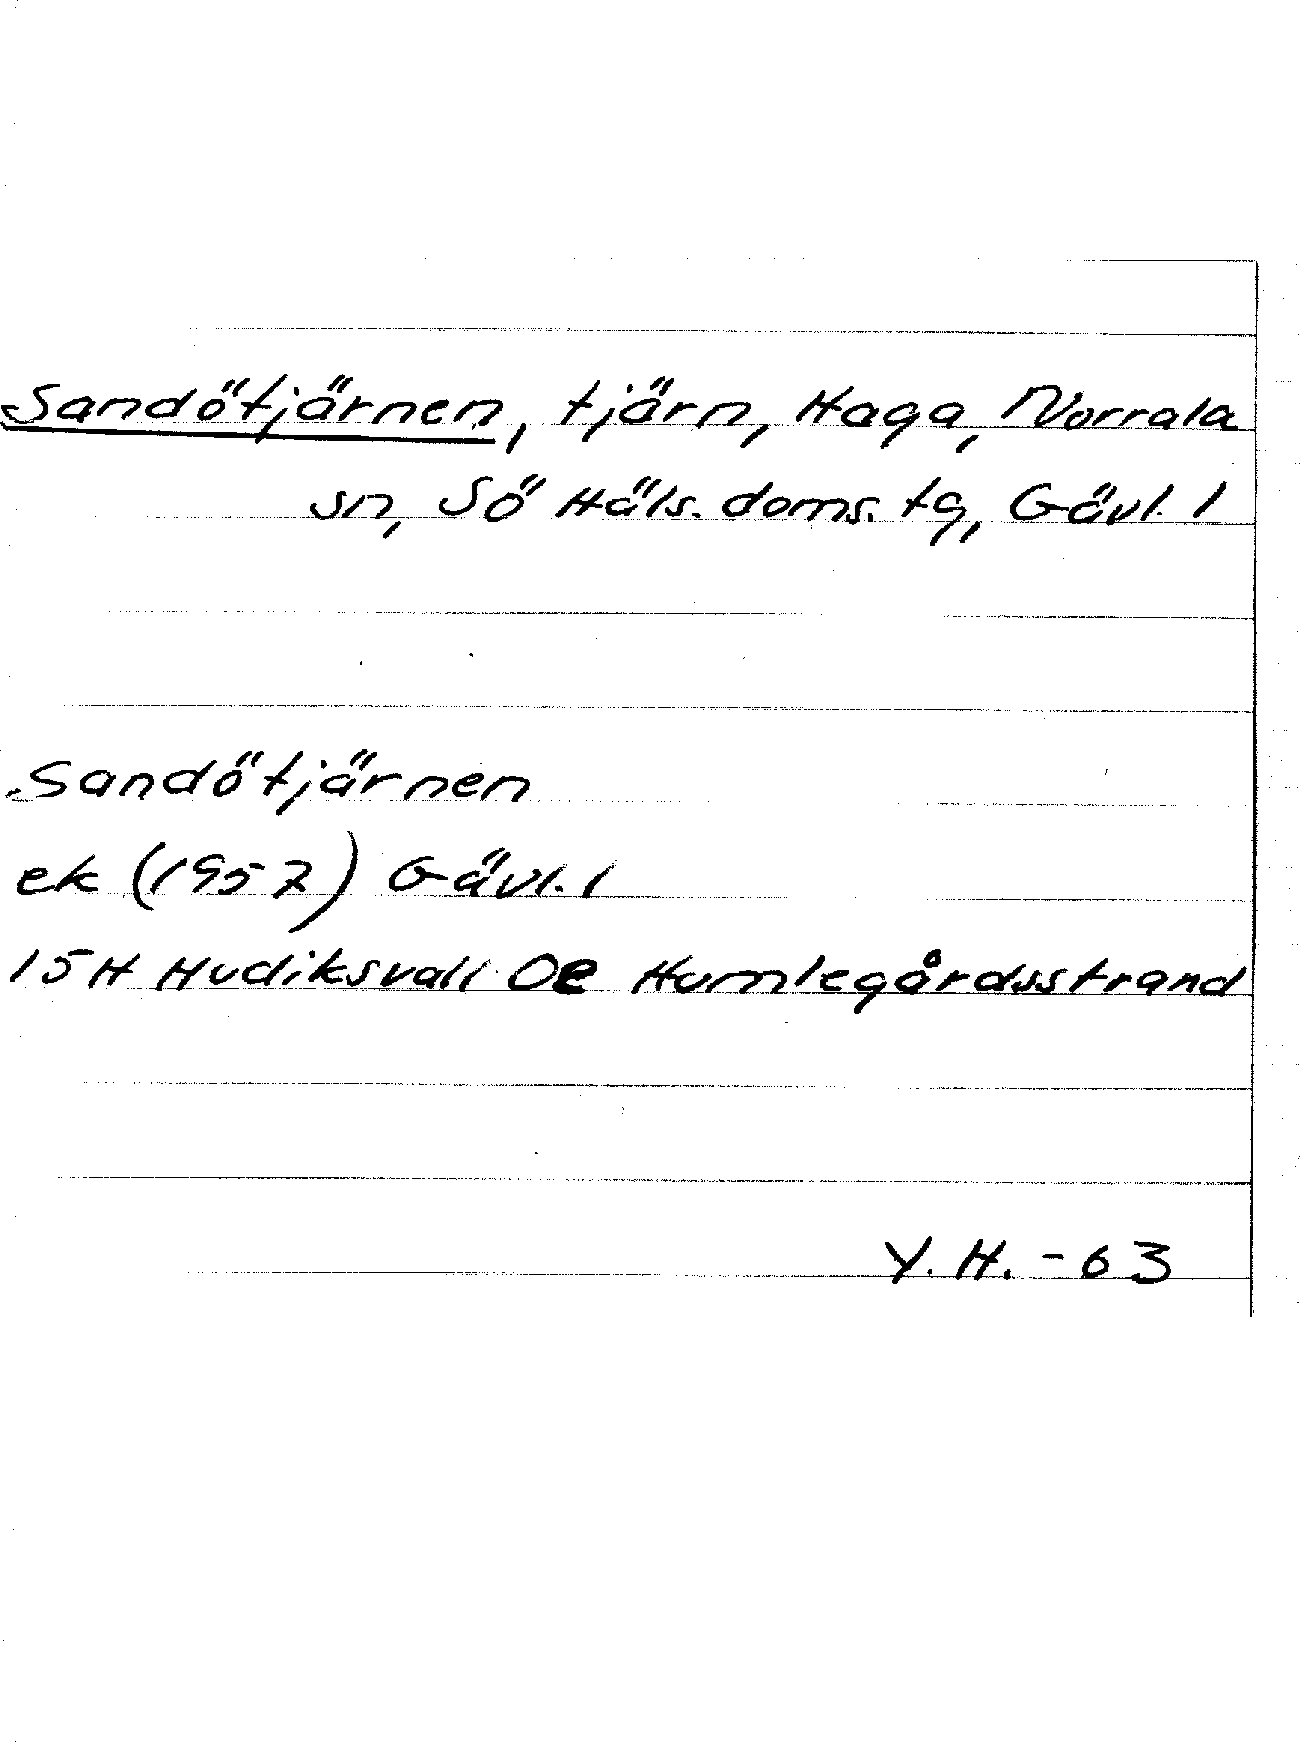 Sandötjärnen, tjärn, Haga, Norrala
sn, Sö Häls. doms. tg, Gävl. l
Sandötjärnen
ek (1957) Gävl. l
15H Hudiksvall 0e Humlegårdsstrand
Y. H. - 63